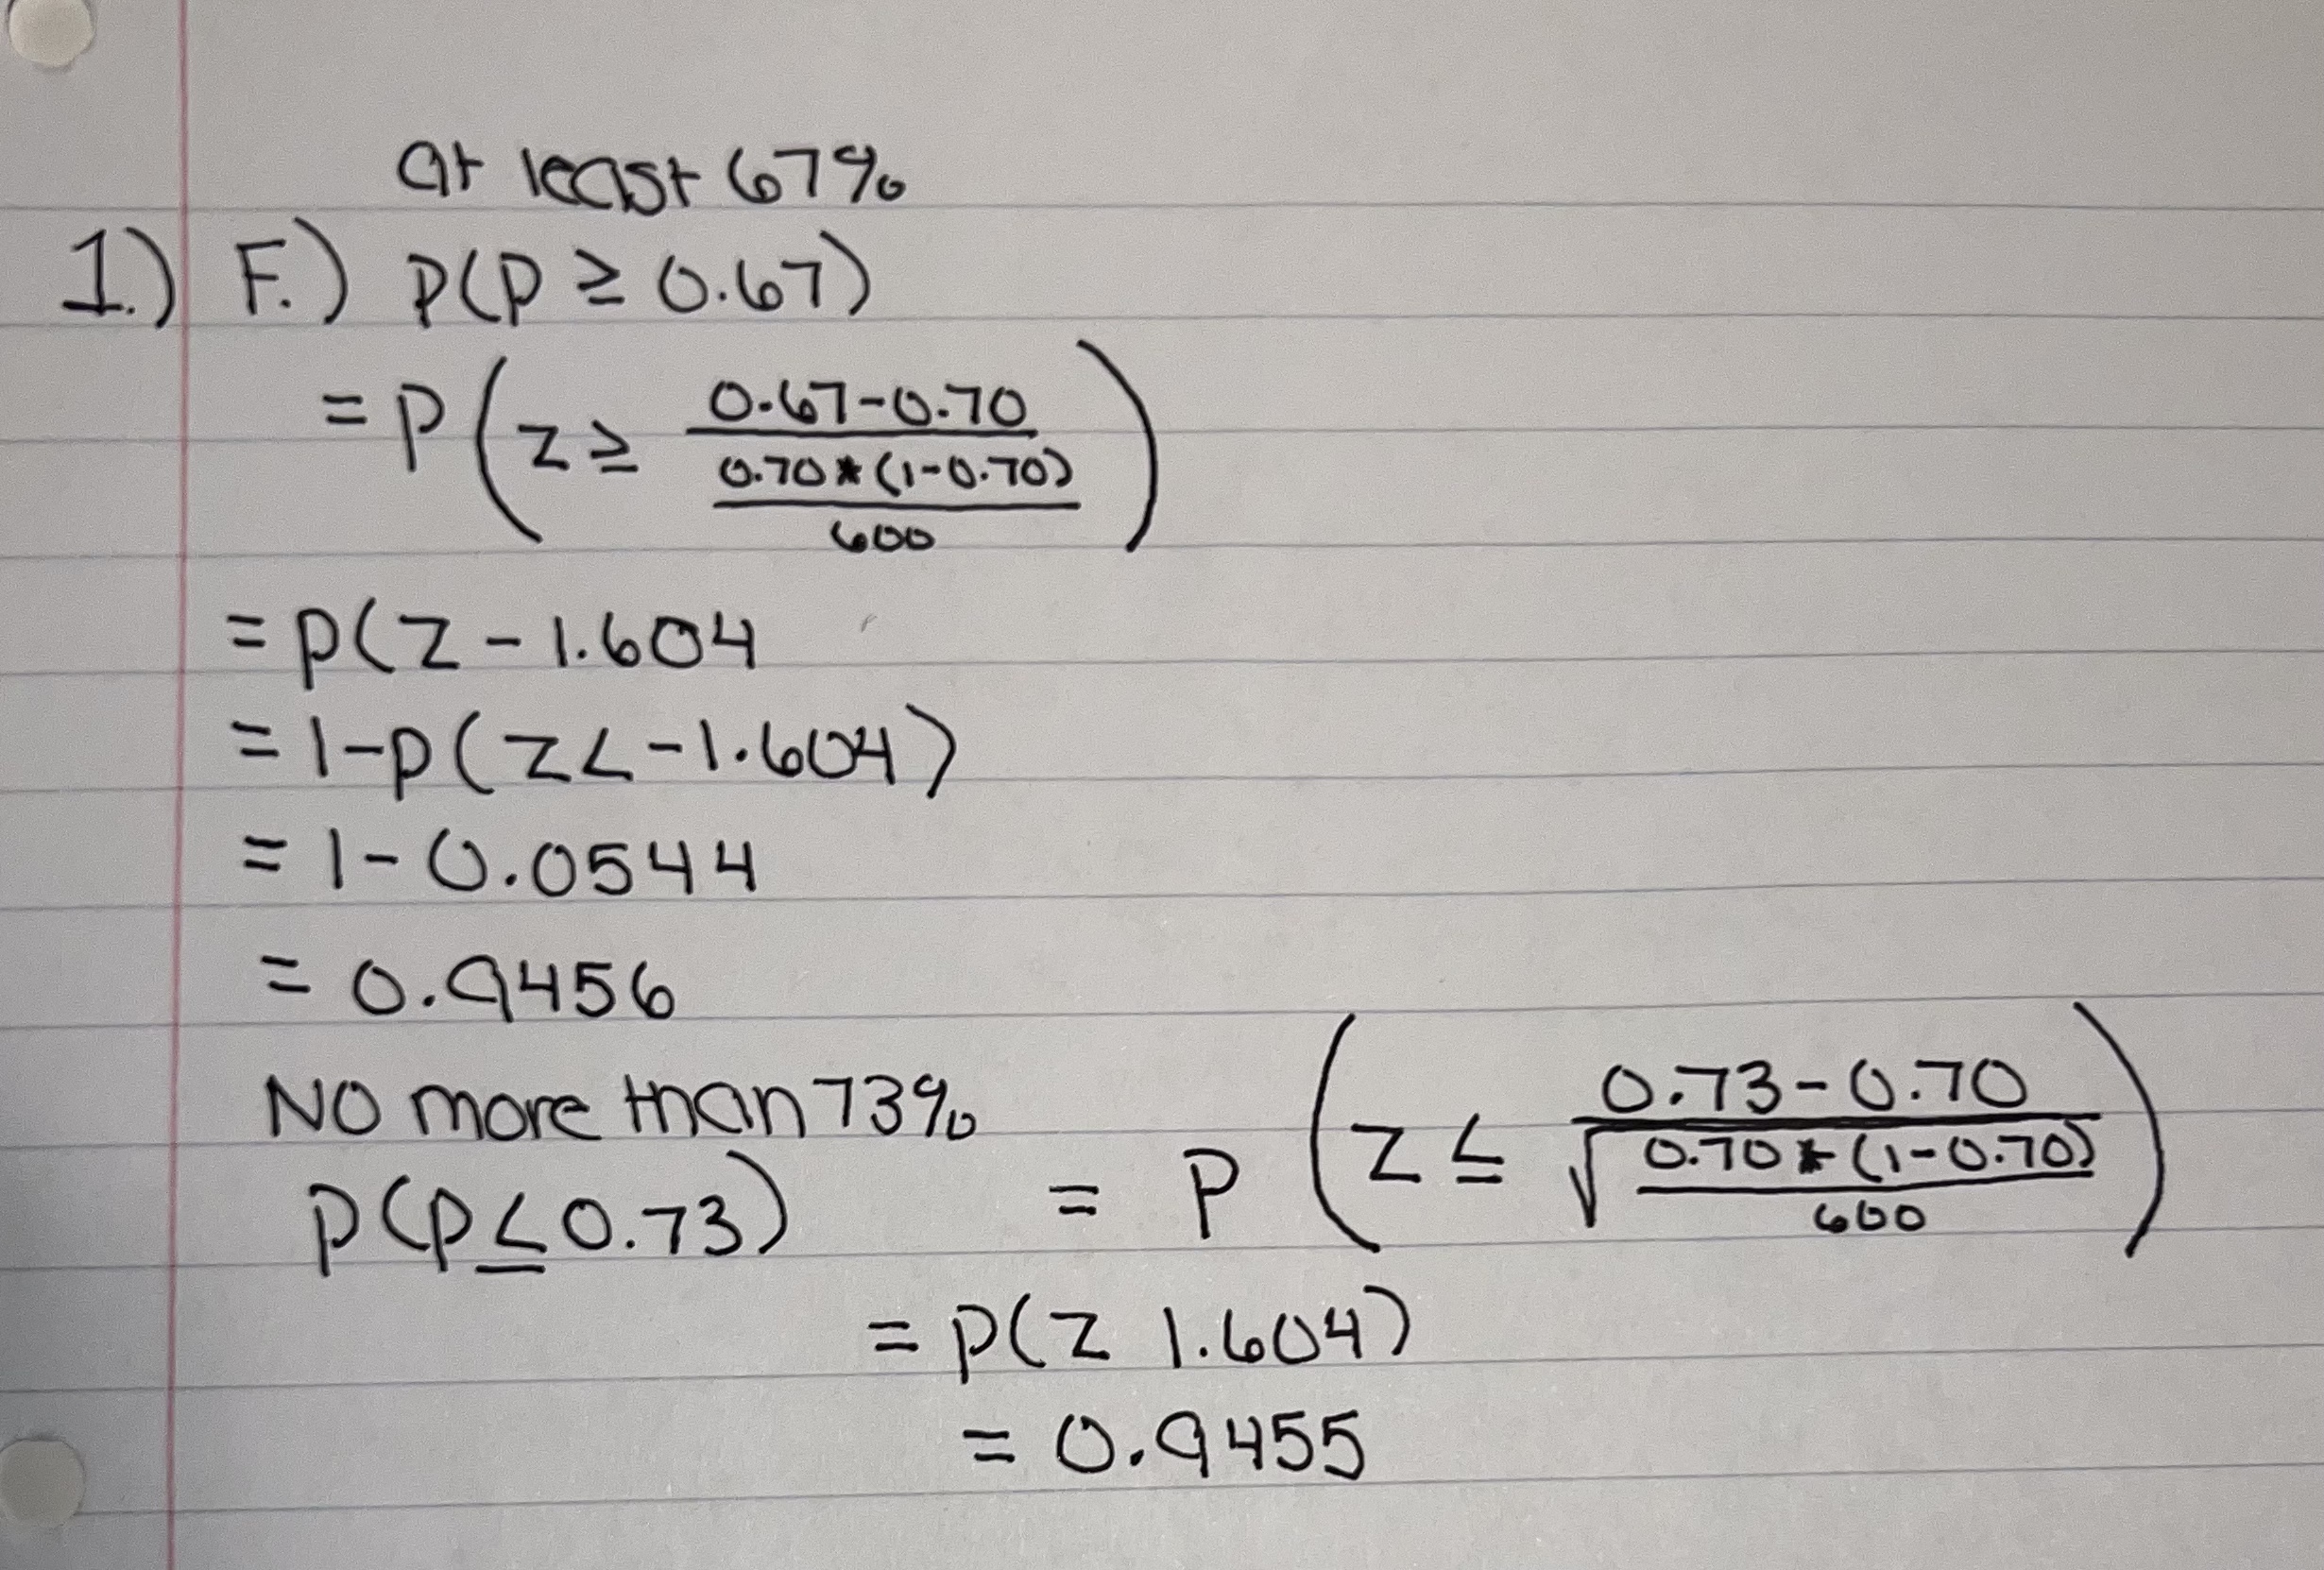 at least 67%
1.) F.) P(P ≥ 0.67)
= P ( z ≥ 0.67-0.70 / 0.70*(1-0.70) / 600 )
= P(Z - 1.604
= 1-P(Z< -1.604)
= 1-0.0544
= 0.9456
NO more than 73%
P(P≤0.73) = P ( Z ≤ 0.73-0.70 / √ 0.70*(1-0.70) / 600 )
= P(Z 1.604)
= 0.9455